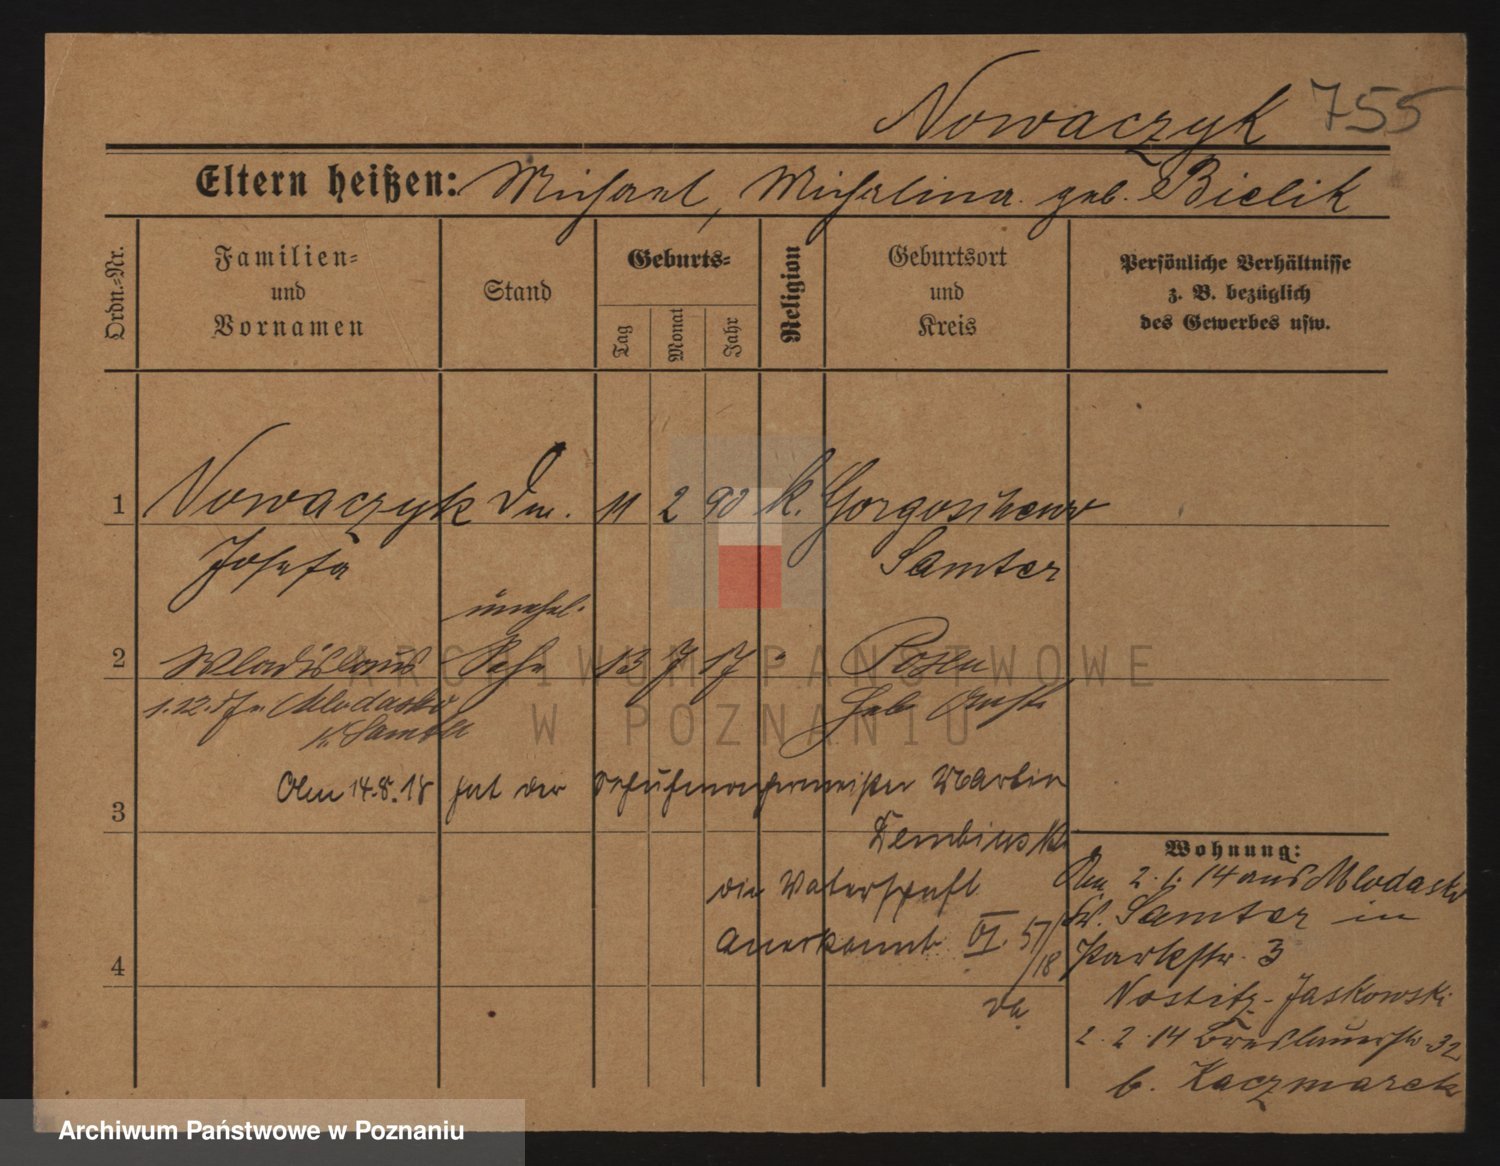 Nowaczyk 755
Eltern heißen: Michael, Michalina geb. Bielik
Ordn.-Nr.
Familien- und Vornamen
Stand
Geburts-
Tag
Monat
Jahr
Religion
Geburtsort und Kreis
Persönliche Verhältnisse
z. B. bezüglich
des Gewerbes usw.
1 Nowaczyk 11 2 90 k.
Josefa Samter
unehel.
2 Wladislaus Sohn 13 7 17 " Posen
1.12.17 n. Mlodasko
K. Samter
3 Am 14.8.18 hat der Schuhmachermeister Martin
Dembinski
die Vaterschaft
4 anerkannt VI. 57/18
Wohnung:
Am 2.1.14 aus Mlodasko
Kr. Samter in
Parkstr. 3
Nostitz-Jaskowski
2.2.14 Breslauerstr. 32
b. Kaczmarek
ARCHIWUM PAŃSTWOWE
W POZNANIU
Archiwum Państwowe w Poznaniu